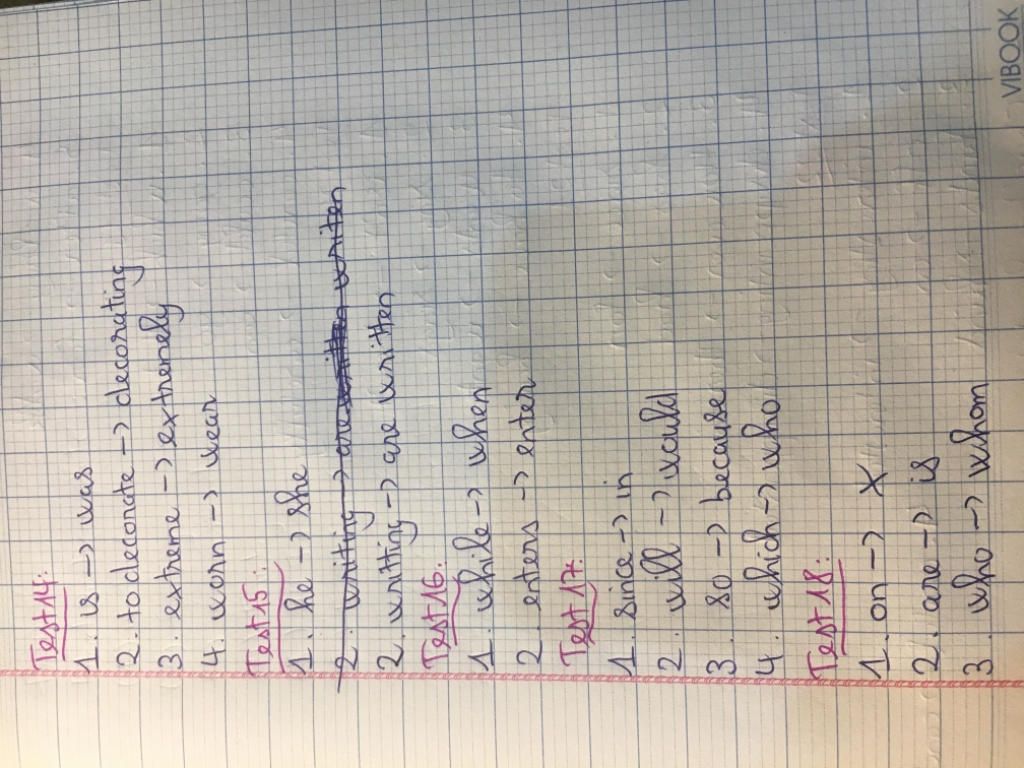 Test 14:
1. is -> was
2. to decorate -> decorating
3. extreme -> extremely
4. worn -> wear
Test 15:
1. he -> she
2. writing -> are written writen
2. writting -> are written
Test 16:
1. while -> when
2. enters -> enter
Test 17:
1. since -> in
2. will -> would
3. so -> because
4. which -> who
Test 18:
1. on -> X
2. are -> is
3. who -> whom
VIBOOK